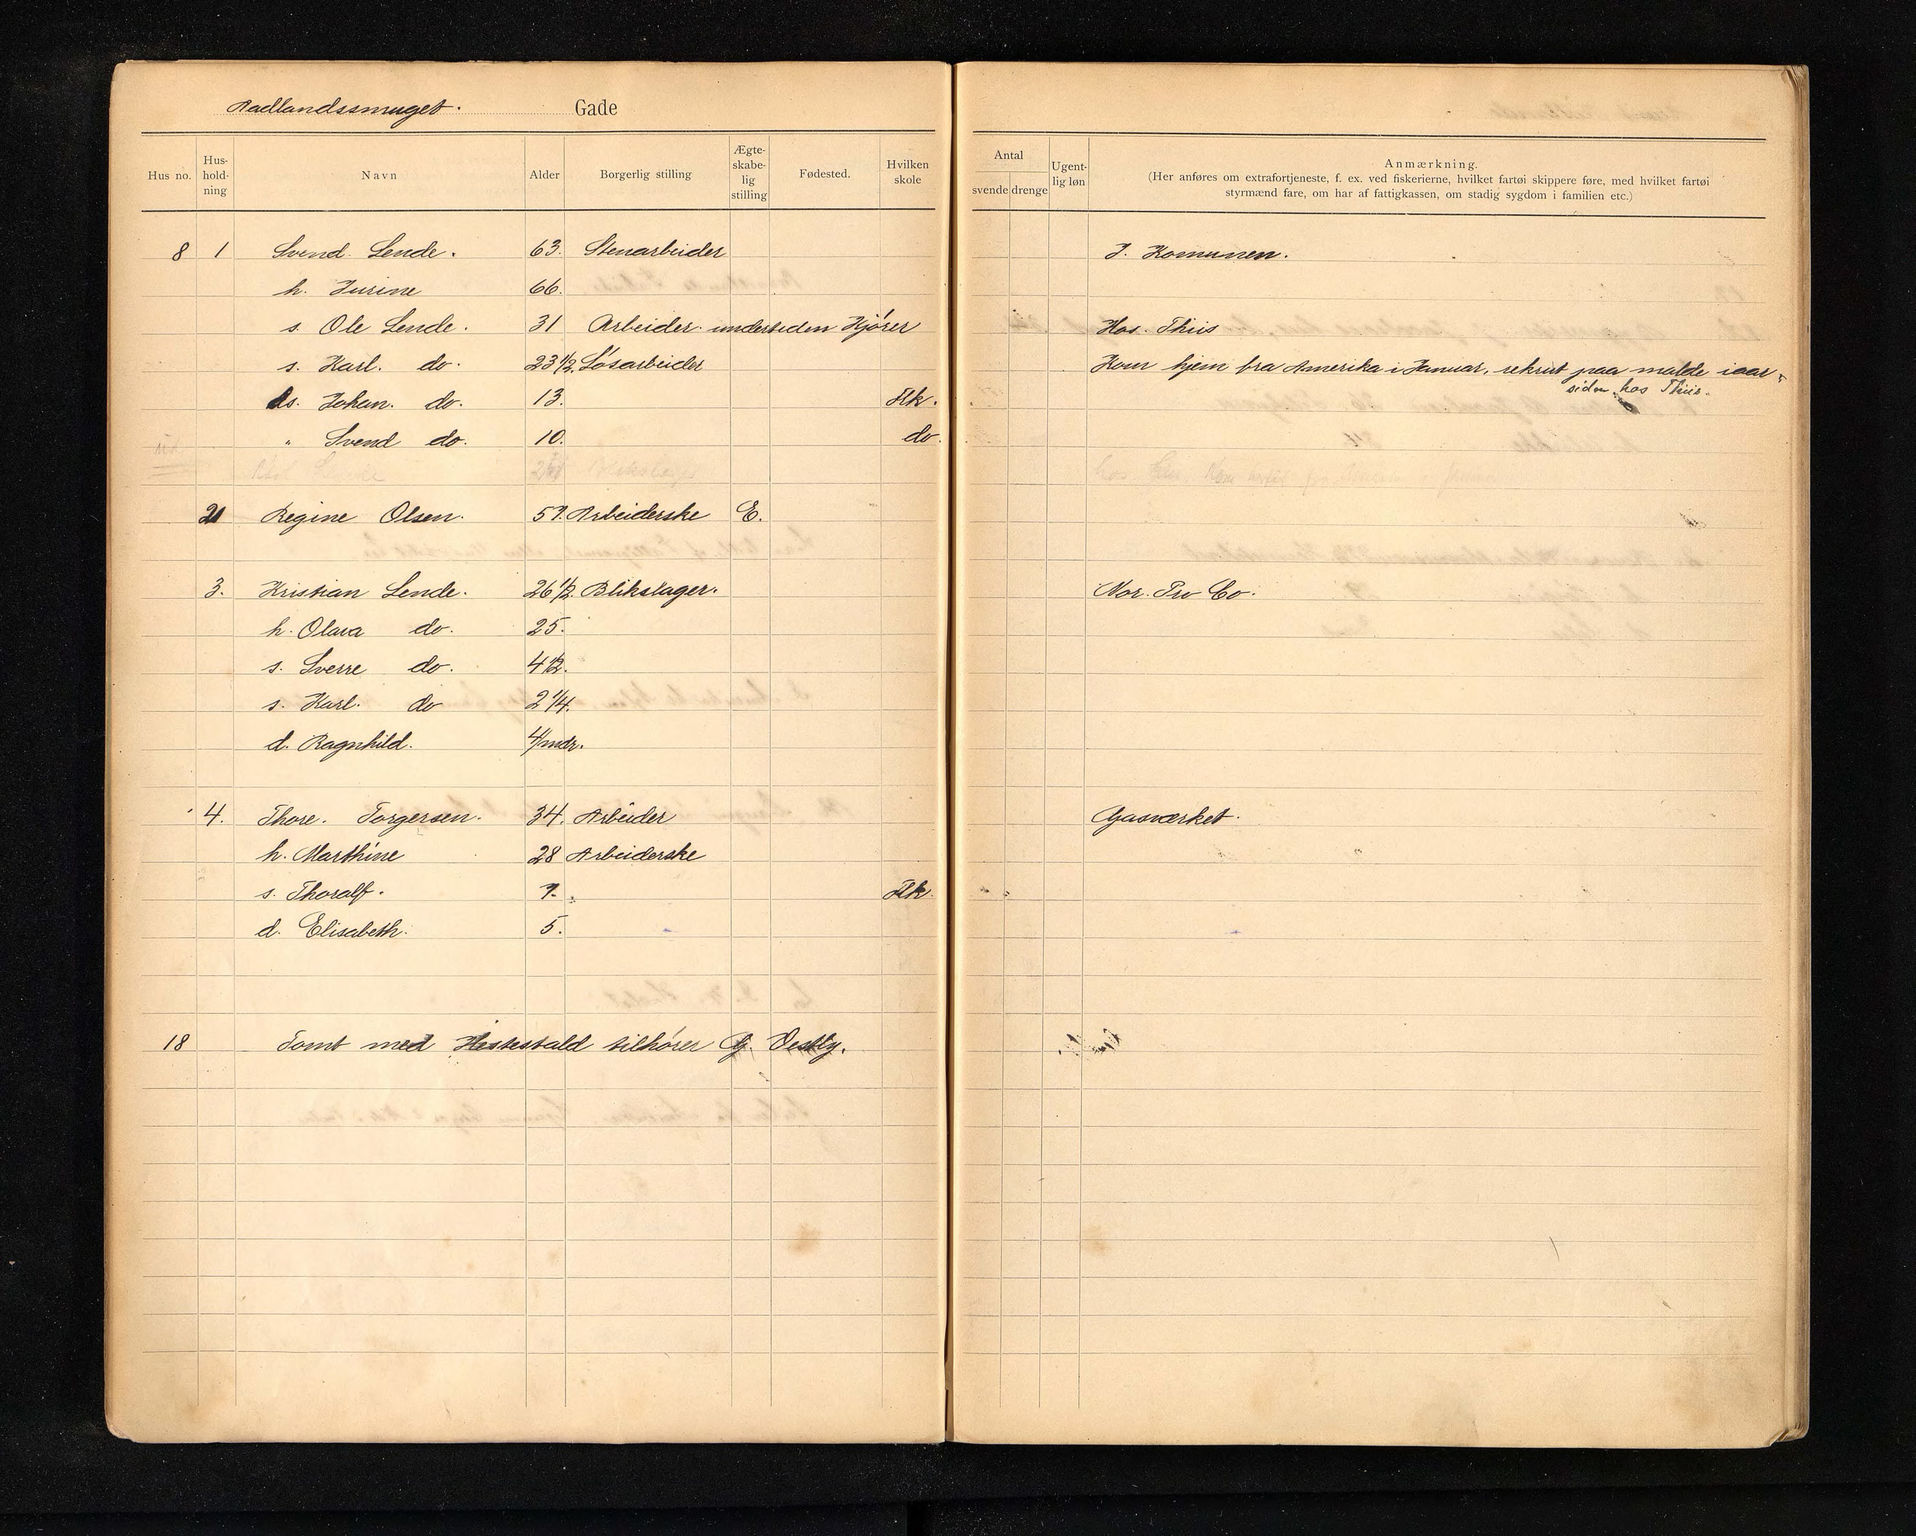 Aadlandssmuget. Gade
Hus no. Hus-hold-ning Navn Alder Borgerlig stilling Ægte-skabe-lig stilling Fødested. Hvilken skole Antal svende drenge Ugent-lig løn Anmærkning.
(Her anføres om extrafortjeneste, f. ex. ved fiskerierne, hvilket fartøi skippere føre, med hvilket fartøi
styrmænd fare, om har af fattigkassen, om stadig sygdom i familien etc.)
8 1 Svend Lende. 63. Stenarbeider J. Komunen.
h. Jurine 66.
s. Ole Lende. 31 Arbeider. undertiden Kjører Hos. Thiis
s. Karl. do. 23 1/2. Løsarbeider Kom hjem fra Amerika i Januar, rekrut paa malde iaar,
siden hos Thiis.
s. Johan. do. 13. Flk.
" Svend do. 10. do.
Lende
2 Regine Olsen. 57. Arbeiderske E.
3. Kristian Lende. 26 1/2. Blikslager. Nor. Prv Co.
h. Olava do. 25.
s. Sverre do. 4 1/2.
s. Karl. do 2 1/4.
d. Ragnhild. 4/mdr.
4. Thore. Torgersen. 34. Arbeider Gasværket.
h. Marthine 28 Arbeiderske
s. Thoralf. 7. Flk.
d. Elisabeth. 5.
18 Tomt med Hestestald tilhører G. Oestby.